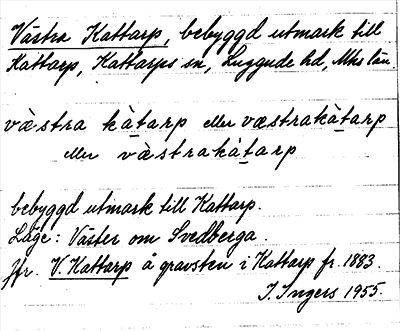 Västra Kattarp, bebyggd utmark till
Kattarp, Kattarps sn, Luggude hd, Mhs län.
vàstra kàtarp eller væstrakàtarp
eller vàstrakàtarp
bebyggd utmark till Kattarp.
Läge: Väster om Svedberga
Jfr. V. Kattarp å gravsten i Kattarp fr. 1883.
I. Ingers 1955.